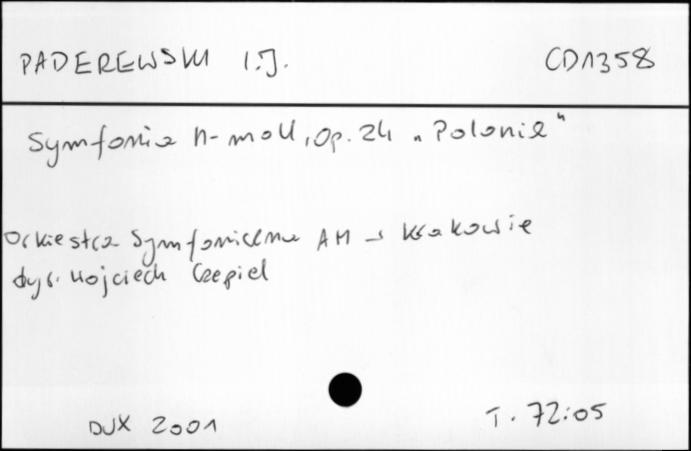 PADEREWSKI I.J. CD1358
Symfonia h-moll, Op. 24 „Polonia"
Orkiestra Symfoniczna AM w Krakowie
dyr. Wojciech Czepiel
DUX 2001 T. 72:05